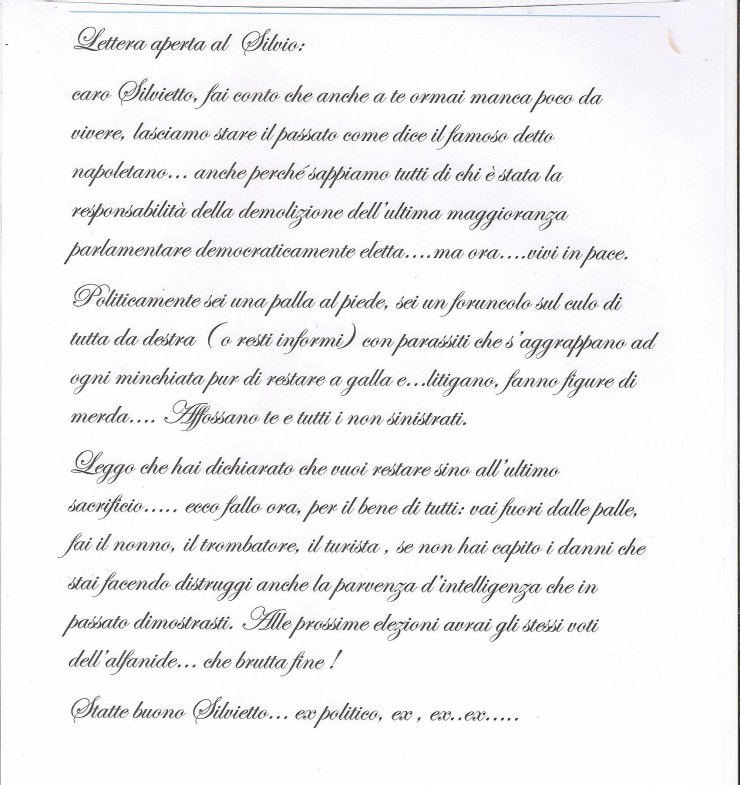 Lettera aperta al Silvio:
caro Silvietto, fai conto che anche a te ormai manca poco da
vivere, lasciamo stare il passato come dice il famoso detto
napoletano... anche perché sappiamo tutti di chi è stata la
responsabilità della demolizione dell'ultima maggioranza
parlamentare democraticamente eletta....ma ora....vivi in pace.
Politicamente sei una palla al piede, sei un foruncolo sul culo di
tutta da destra (o resti informi) con parassiti che s'aggrappano ad
ogni minchiata pur di restare a galla e...litigano, fanno figure di
merda.... Affossano te e tutti i non sinistrati.
Leggo che hai dichiarato che vuoi restare sino all'ultimo
sacrificio..... ecco fallo ora, per il bene di tutti: vai fuori dalle palle,
fai il nonno, il trombatore, il turista , se non hai capito i danni che
stai facendo distruggi anche la parvenza d'intelligenza che in
passato dimostrasti. Alle prossime elezioni avrai gli stessi voti
dell'alfanide... che brutta fine !
Statte buono Silvietto... ex politico, ex , ex..ex.....